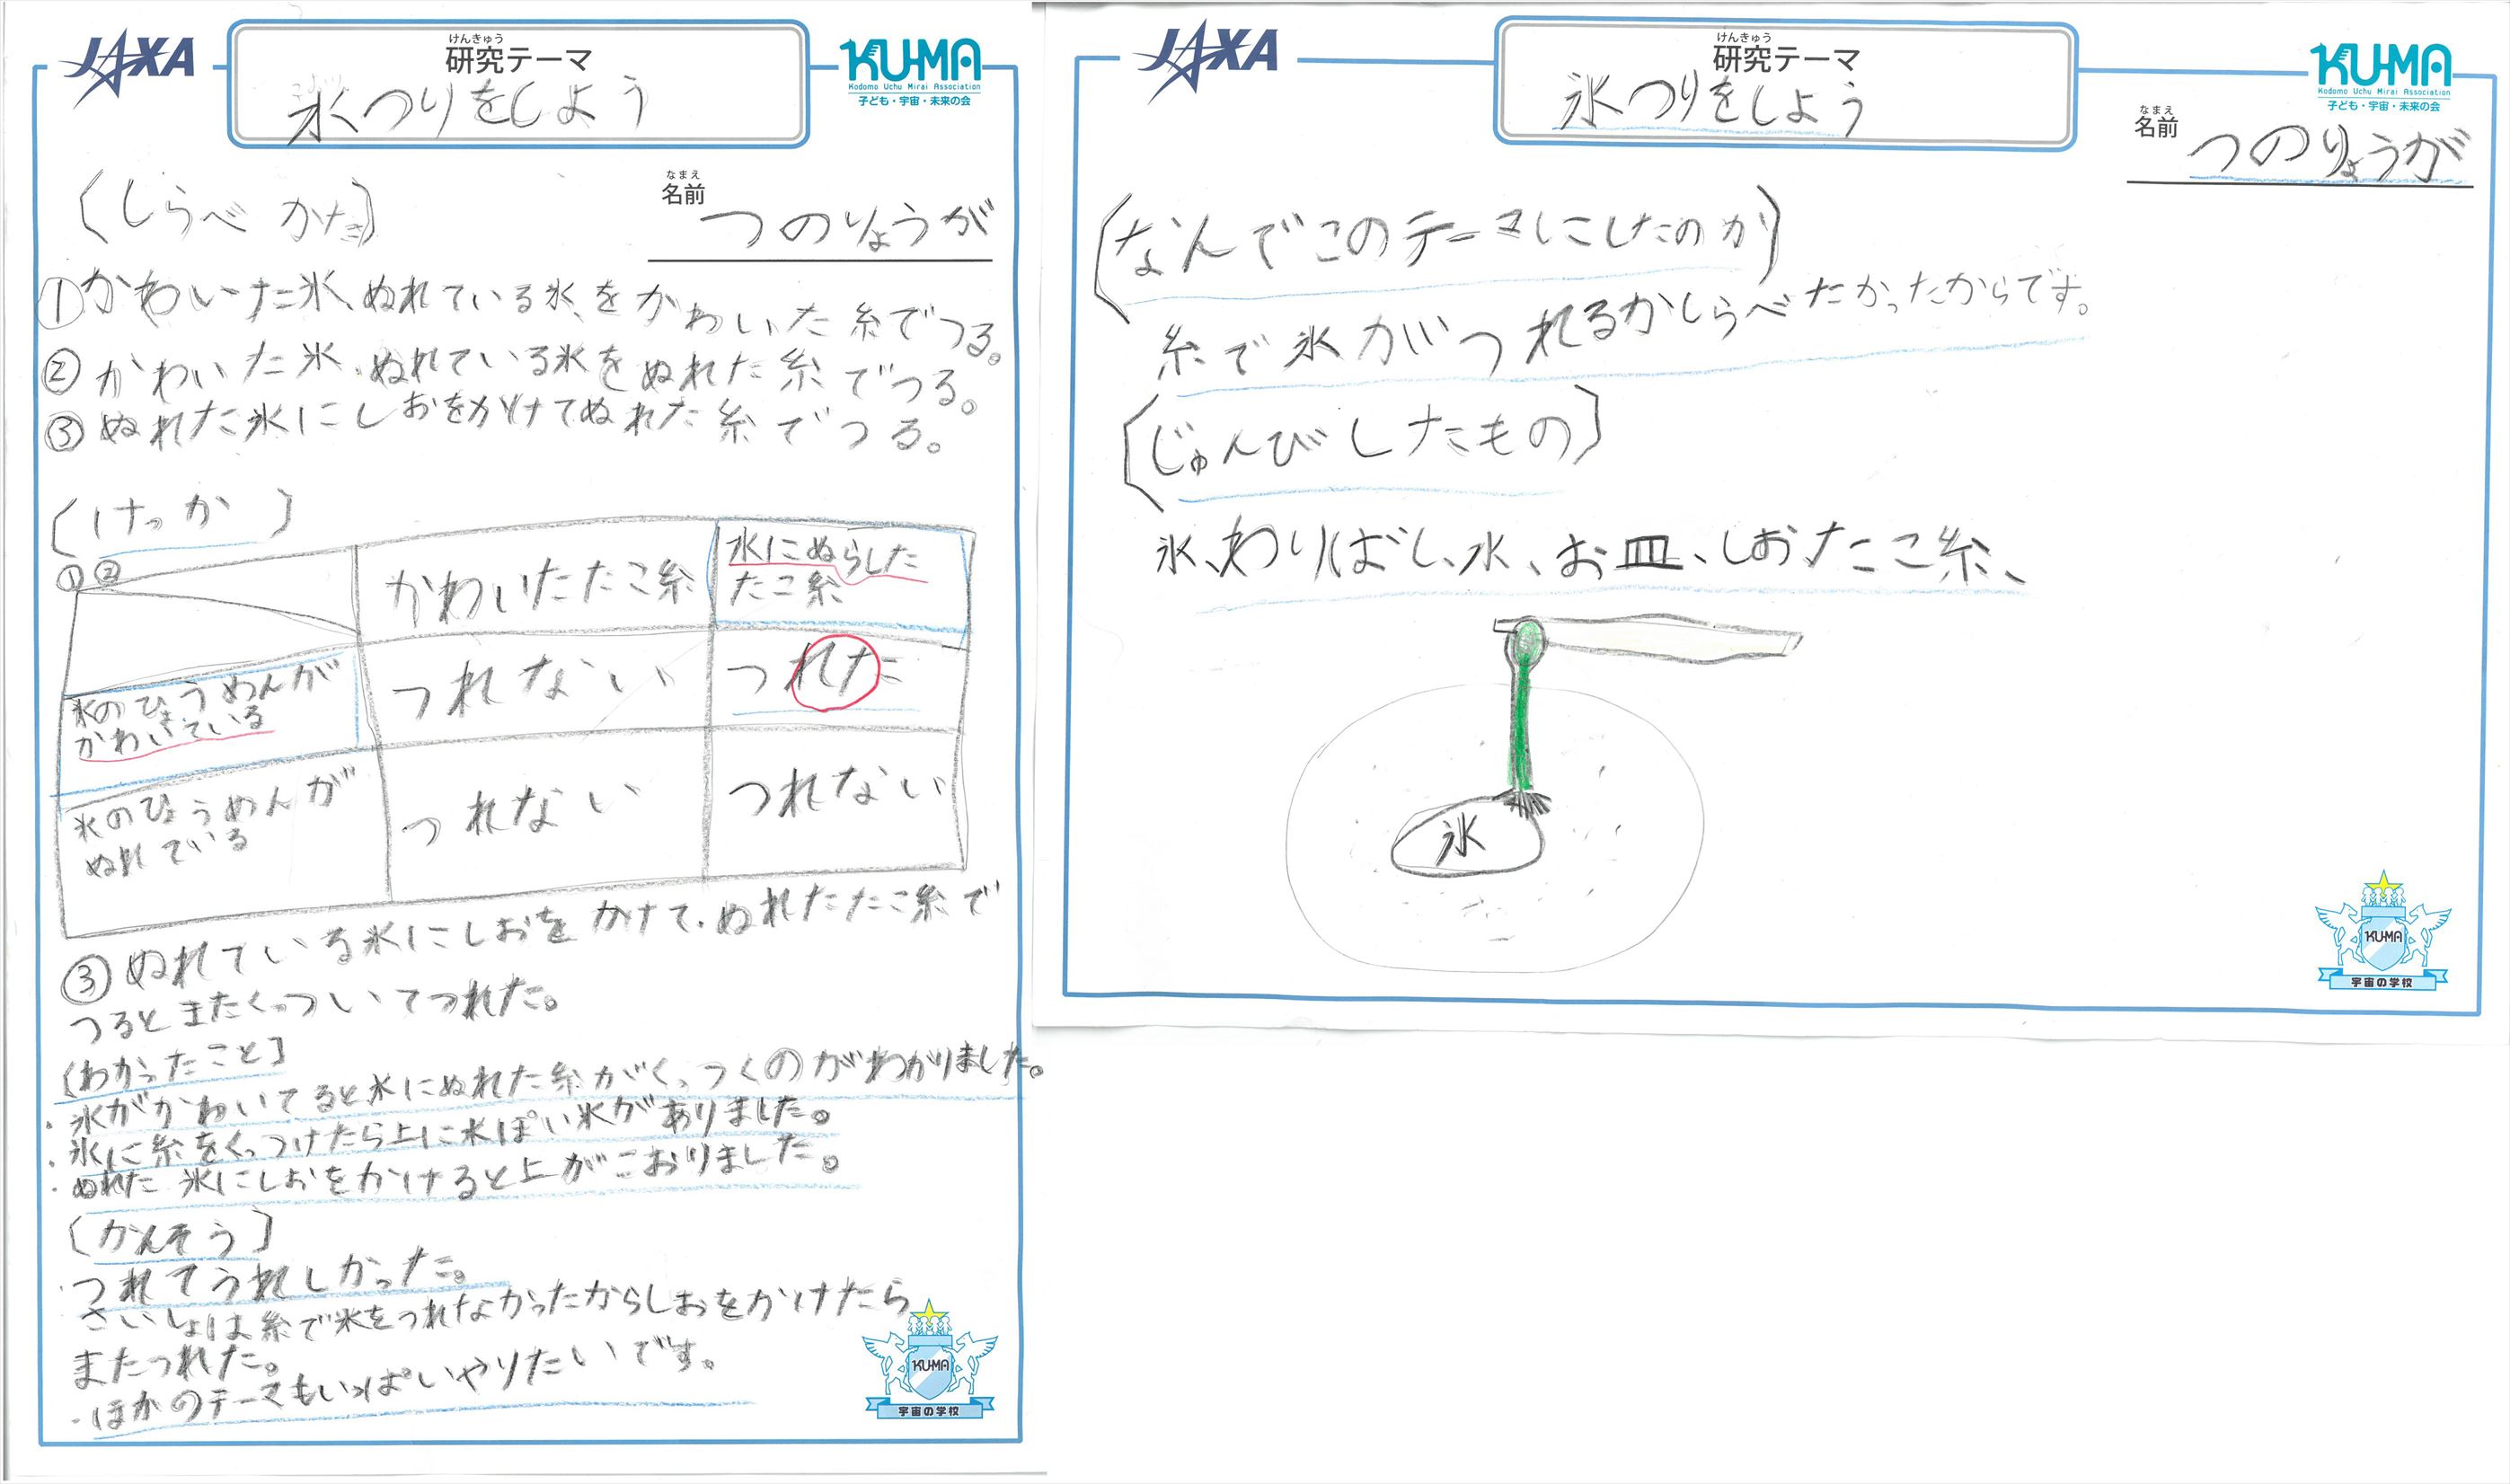 JAXA
けんきゅう
研究テーマ
氷つりをしよう
KU-MA
Kodomo Uchu Mirai Association
子ども・宇宙・未来の会
(しらべ かた)
なまえ
名前
つのりょうが
①かわいた氷、ぬれている氷、をかわいた糸でつる。
②かわいた氷、ぬれている氷をぬれた糸でつる。
③ぬれた氷にしおをかけてぬれた糸でつる。
(けっか)
①②
かわいたたこ糸
水にぬらした
たこ糸
氷のひょうめんが
かわいている
つれない
つれた
氷のひょうめんが
ぬれている
つれない
つれない
③ぬれている氷にしおをかけて、ぬれたたこ糸で
つるとまたくっついてつれた。
(わかったこと)
・氷がかわいてると水にぬれた糸がくっつくのがわかりました。
・氷に糸をくっつけたら上に水ぽい氷がありました。
・ぬれた氷にしおをかけると上がこおりました。
(かんそう)
・つれてうれしかった。
さいしょは糸で氷をつれなかったからしおをかけたら
またつれた。
・ほかのテーマもいっぱいやりたいです。
KU-MA
宇宙の学校
JAXA
けんきゅう
研究テーマ
氷つりをしよう
KU-MA
Kodomo Uchu Mirai Association
子ども・宇宙・未来の会
なまえ
名前
つのりょうが
(なんでこのテーマにしたのか)
糸で氷がつれるかしらべたかったからです。
(じゅんびしたもの)
氷、わりばし、水、お皿、しおたこ糸、
氷
KU-MA
宇宙の学校